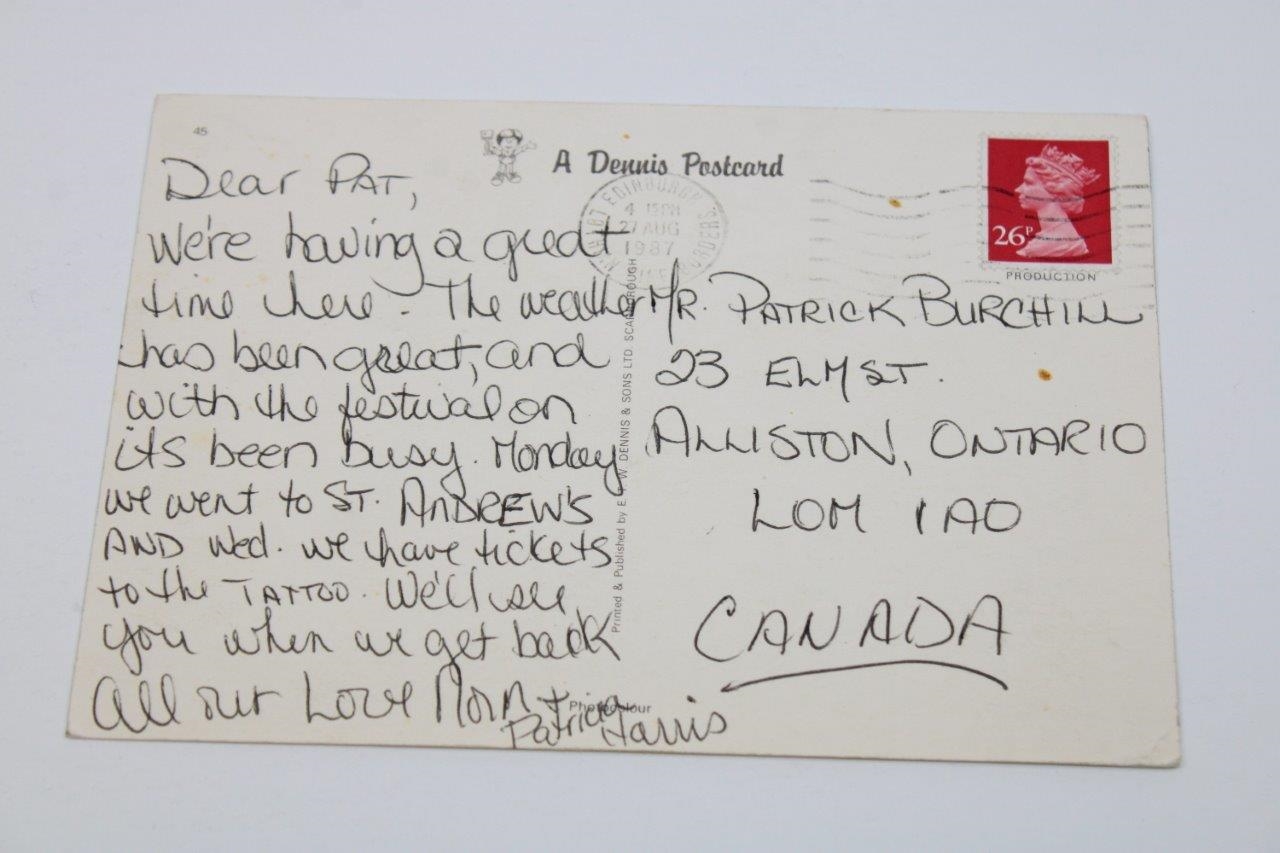 45
A Dennis Postcard
Dear PAT,
We're having a great
time here. The weather
has been great, and
with the festival on
its been busy. Monday
we went to ST. ANDREW'S
AND Wed. we have tickets
to the TATTOO. We'll see
you when we get back
All our Love Mom +
Patricia Harris
Printed & Published by E. T. W. DENNIS & SONS LTD. SCARBOROUGH
Photocolour
EDINBURGH
4 15PM
27 AUG
1987
BORDERS
26P
PRODUCTION
MR. PATRICK BURCHILL
23 ELM ST.
ALLISTON, ONTARIO
LOM 1A0
CANADA